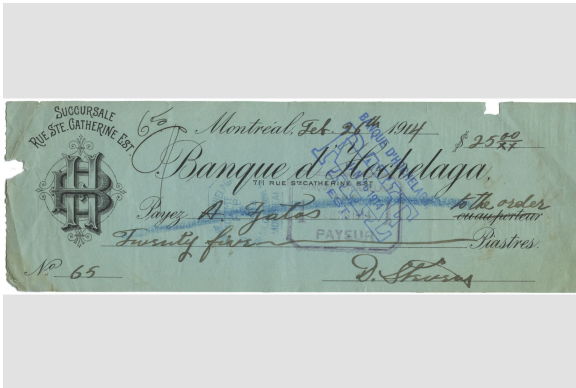 SUCCURSALE
RUE STE. CATHERINE EST
Montréal, Feb. 26th 1914
$25.00/xx
Banque d'Hochelaga,
711 RUE STE CATHERINE EST
BANQUE D'HOCHELAGA
Payez A. Gatos to the order
ou au porteur
PAYEUR
Twenty five Piastres.
No 65
D. Stevens